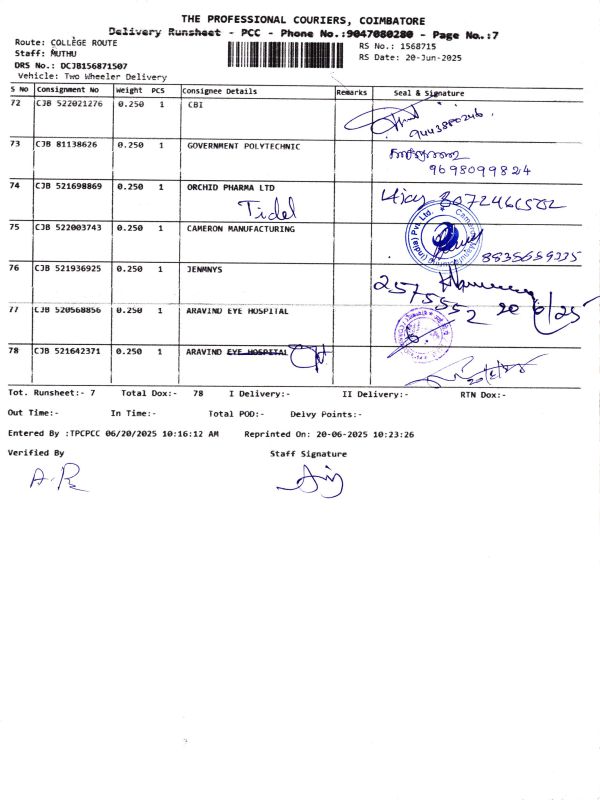 THE PROFESSIONAL COURIERS, COIMBATORE
Delivery Runsheet - PCC - Phone No.:9047080280 - Page No.:7
Route: COLLEGE ROUTE
Staff: MUTHU
DRS No.: DCJB156871507
Vehicle: Two Wheeler Delivery
RS No.: 1568715
RS Date: 20-Jun-2025
S No Consignment No Weight PCS Consignee Details Remarks Seal & Signature
72 CJB 522021276 0.250 1 CBI
9443880246.
73 CJB 81138626 0.250 1 GOVERNMENT POLYTECHNIC
9698099824
74 CJB 521698869 0.250 1 ORCHID PHARMA LTD
Tidel
75 CJB 522003743 0.250 1 CAMERON MANUFACTURING
76 CJB 521936925 0.250 1 JENMNYS
2575552 20/6/25
77 CJB 520568856 0.250 1 ARAVIND EYE HOSPITAL
78 CJB 521642371 0.250 1 ARAVIND EYE HOSPITAL
Tot. Runsheet:- 7 Total Dox:- 78 I Delivery:- II Delivery:- RTN Dox:-
Out Time:- In Time:- Total POD:- Delvy Points:-
Entered By :TPCPCC 06/20/2025 10:16:12 AM Reprinted On: 20-06-2025 10:23:26
Verified By Staff Signature